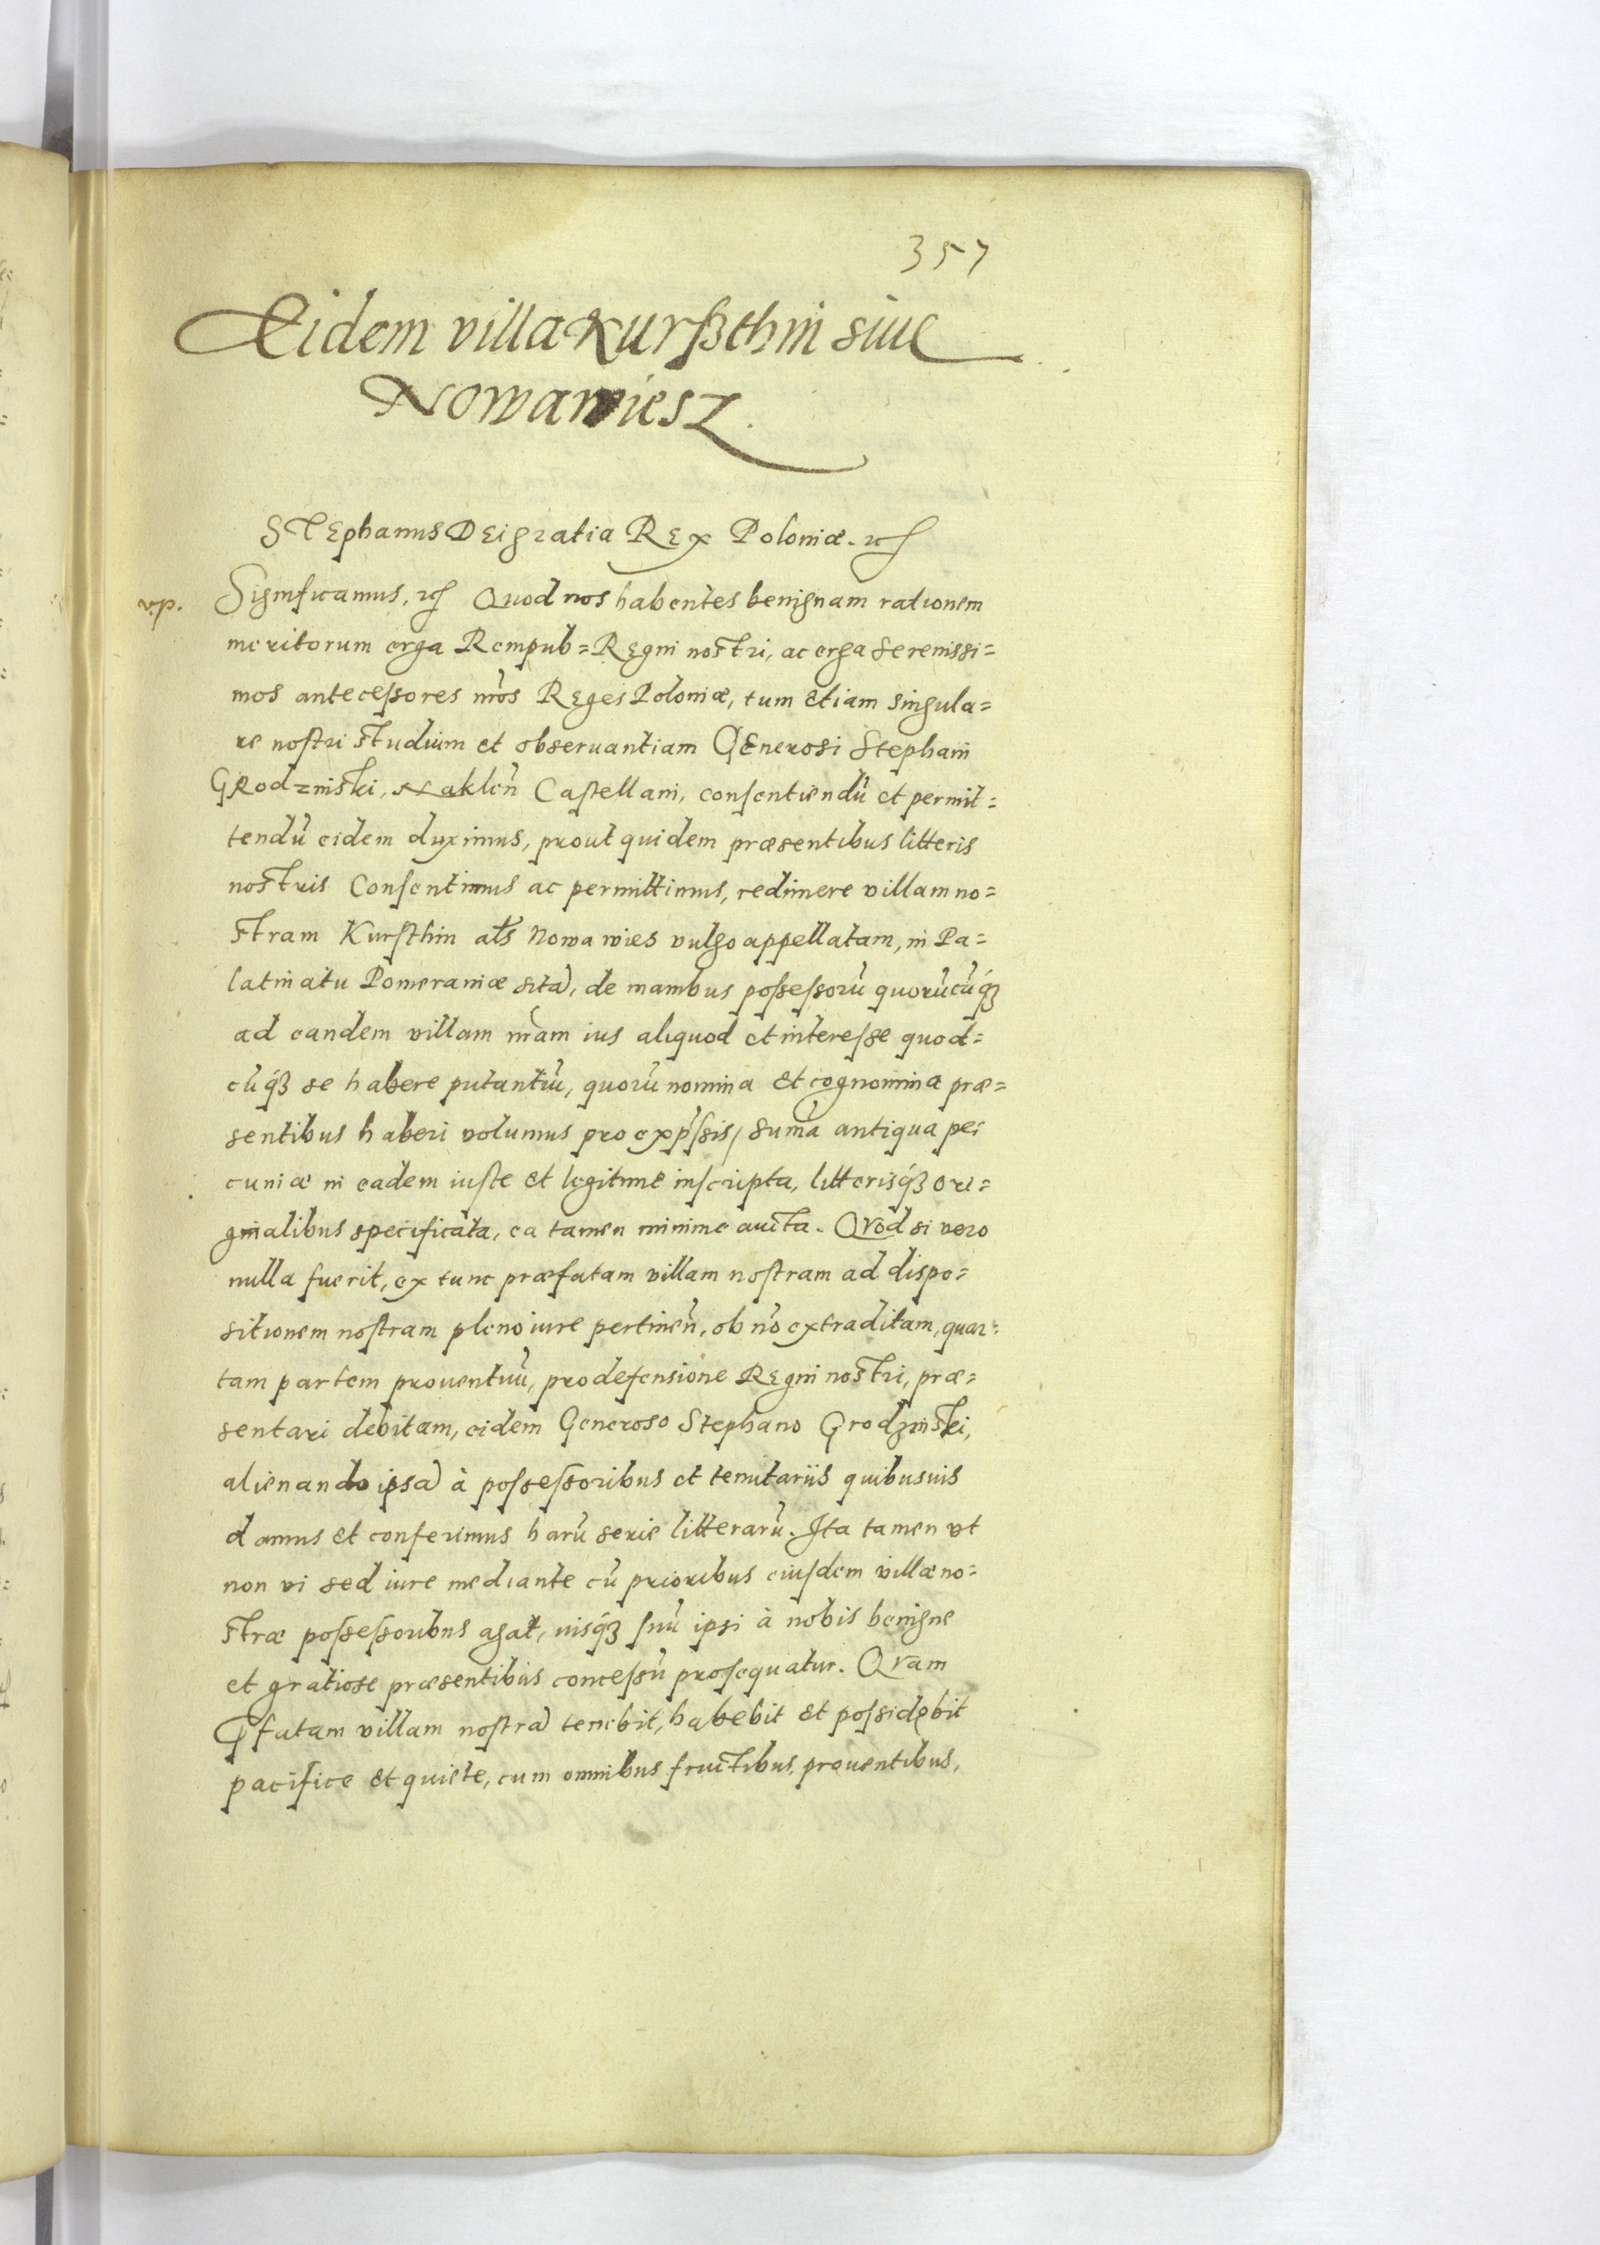 357
Eidem villa Kurßthin siue
Nowawiesz.
Stephanus Dei gratia Rex Poloniæ. etc
v.p. Significamus, etc Quod nos habentes benignam rationem
meritorum erga Rempub= Regni nostri, ac erga Serenissi=
mos antecessores nr̃os Reges Poloniæ, tum etiam singula=
re nostri studium et obseruantiam Generosi Stephani
Grodzinski, Naklen̄ Castellani, consentiendū et permit=
tendū eidem duximus, prout quidem præsentibus litteris
nostris Consentimus ac permittimus, redimere villam no=
stram Kursthin al̃s Nowa wies vulgo appellatam, in Pa=
latinatu Pomeraniæ sitā, de manibus possessorū quorūcūq́ꝫ
ad eandem villam nr̃am ius aliquod et interesse quod=
cūq́ꝫ se habere putantiū, quorū nomina et cognomina præ=
sentibus haberi volumus pro exp̃ssis, sum̃a antiqua pe=
cuniæ in eadem iuste et legitime inscripta, litterisq́ꝫ ori=
ginalibus specificata, ea tamen minime aucta. Quod si vero
nulla fuerit, ex tunc præfatam villam nostram ad dispo=
sitionem nostram pleno iure pertinen̄, ob nō extraditam, quar=
tam partem prouentuū, pro defensione Regni nostri, præ=
sentari debitam, eidem Generoso Stephano Grodzinski,
alienando ipsā à possessoribus et tenutariis quibusuis
damus et conferimus harū serie litterarū. Ita tamen vt
non vi sed iure mediante cū prioribus eiusdem villæ no=
stræ possessoribus agat, iusq́ꝫ suū ipsi à nobis benigne
et gratiose præsentibus concessū prosequatur. Quam
p̃fatam villam nostrā tenebit, habebit et possidebit
pacifice et quiete, cum omnibus fructibus, prouentibus,